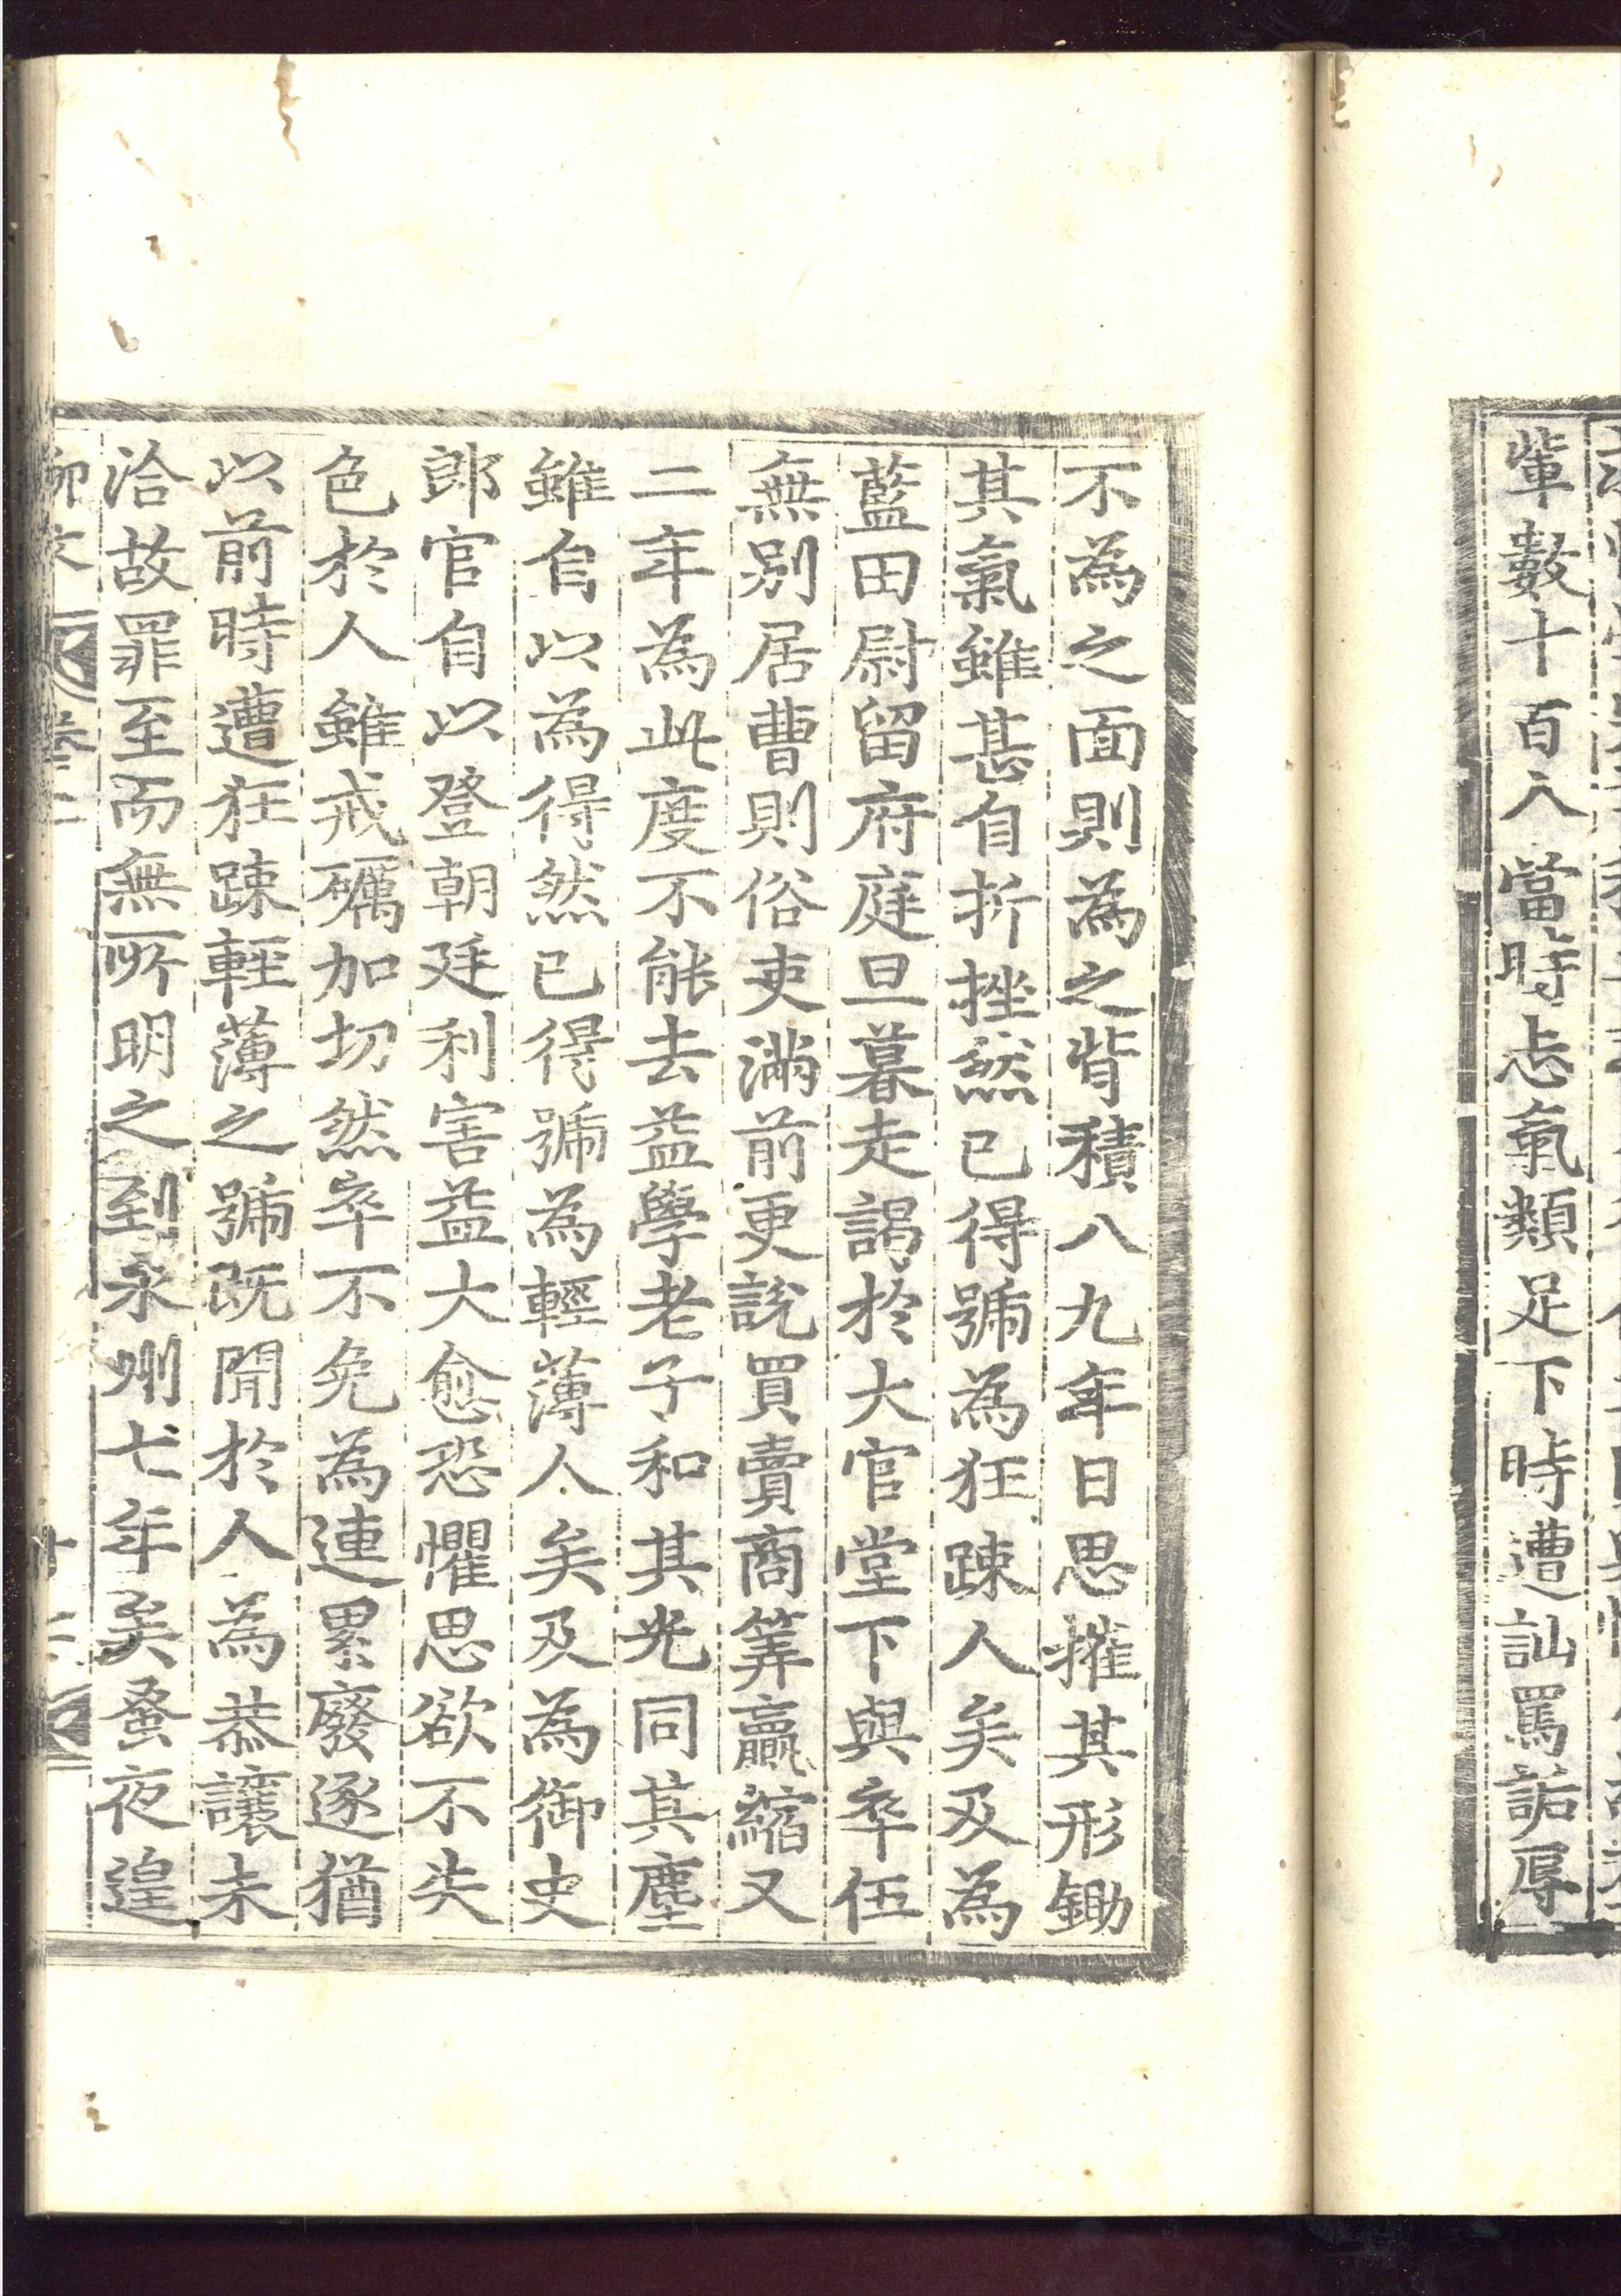 輩數十百人當時志氣類足下時遭訕罵詬辱
不為之面則為之背積八九年日思摧其形鋤
其氣雖甚自折挫然已得號為狂踈人矣及為
藍田尉留府庭旦暮走謁於大官堂下與卒伍
無別居曹則俗吏滿前更說買賣商筭贏縮又
二年為此度不能去益學老子和其光同其塵
雖自以為得然已得號為輕薄人矣及為御史
郎官自以登朝廷利害益大愈恐懼思欲不失
色於人雖戒礪加切然卒不免為連累廢逐猶
以前時遭狂踈輕薄之號既聞於人為恭讓未
洽故罪至而無所明之到永州七年矣蚤夜遑